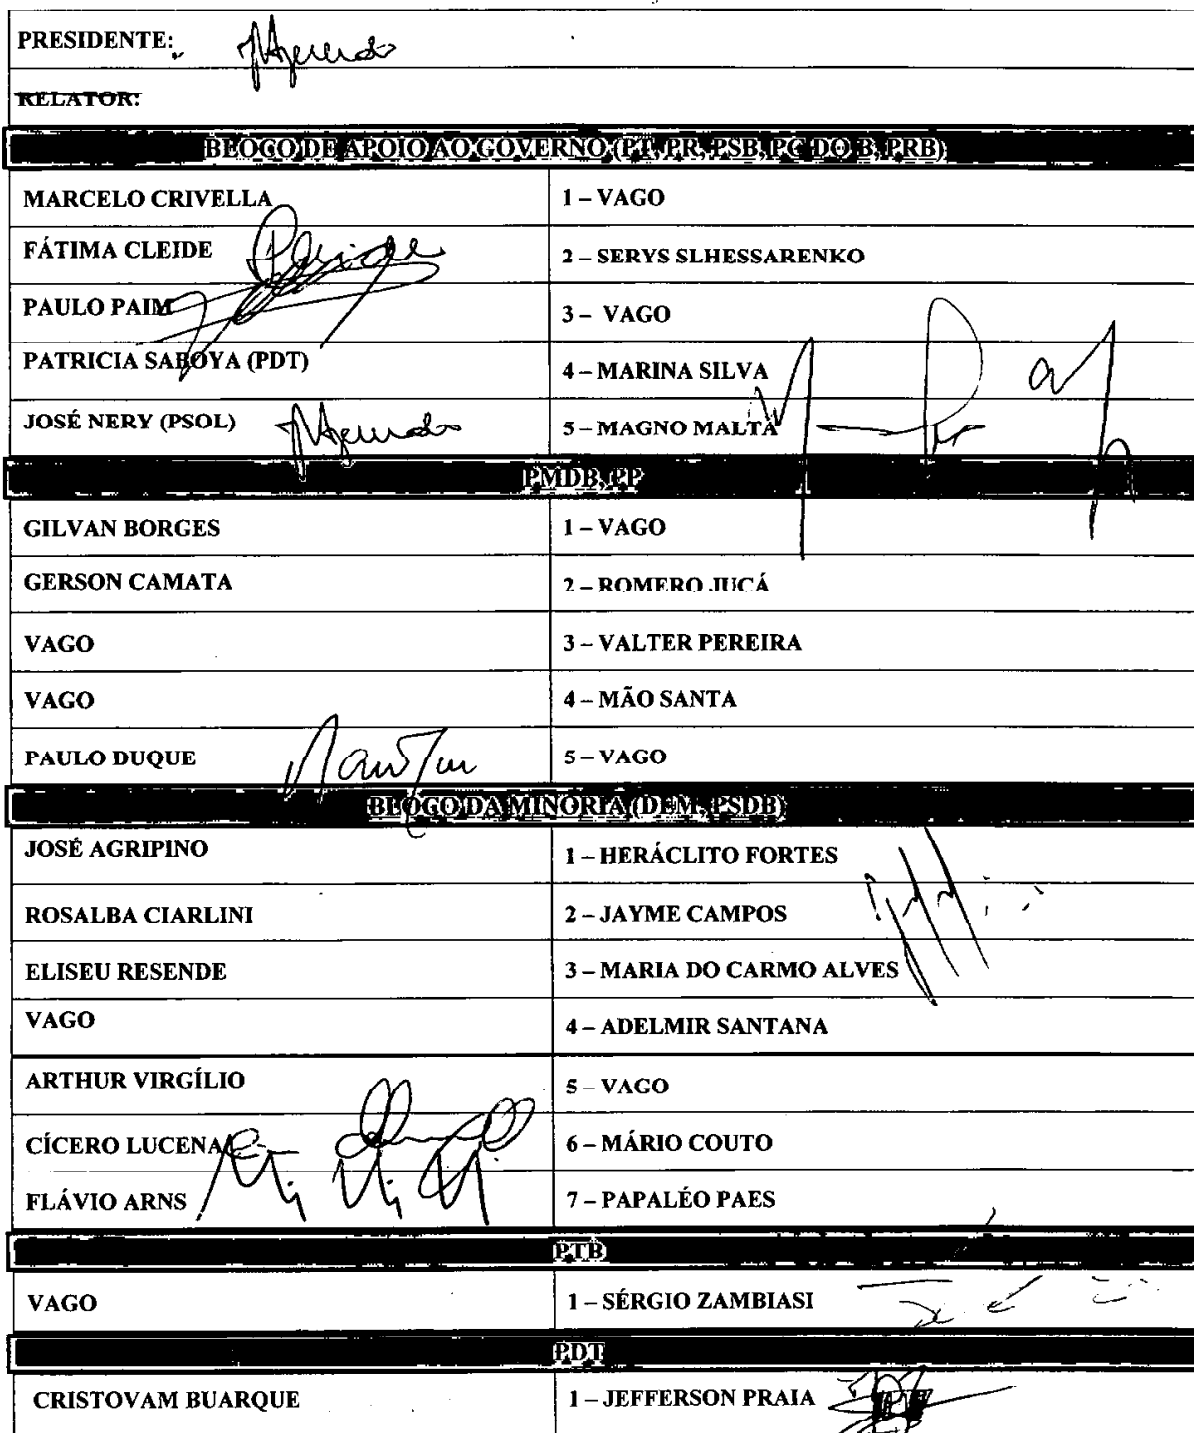 PRESIDENTE:
RELATOR:
BLOCO DE APOIO AO GOVERNO (PT, PR, PSB, PC DO B, PRB)
MARCELO CRIVELLA 1 – VAGO
FÁTIMA CLEIDE 2 – SERYS SLHESSARENKO
PAULO PAIM 3 – VAGO
PATRICIA SABOYA (PDT) 4 – MARINA SILVA
JOSÉ NERY (PSOL) 5 – MAGNO MALTA
PMDB, PP
GILVAN BORGES 1 – VAGO
GERSON CAMATA 2 – ROMERO JUCÁ
VAGO 3 – VALTER PEREIRA
VAGO 4 – MÃO SANTA
PAULO DUQUE 5 – VAGO
BLOCO DA MINORIA (DEM, PSDB)
JOSÉ AGRIPINO 1 – HERÁCLITO FORTES
ROSALBA CIARLINI 2 – JAYME CAMPOS
ELISEU RESENDE 3 – MARIA DO CARMO ALVES
VAGO 4 – ADELMIR SANTANA
ARTHUR VIRGÍLIO 5 – VAGO
CÍCERO LUCENA 6 – MÁRIO COUTO
FLÁVIO ARNS 7 – PAPALÉO PAES
PTB
VAGO 1 – SÉRGIO ZAMBIASI
PDT
CRISTOVAM BUARQUE 1 – JEFFERSON PRAIA